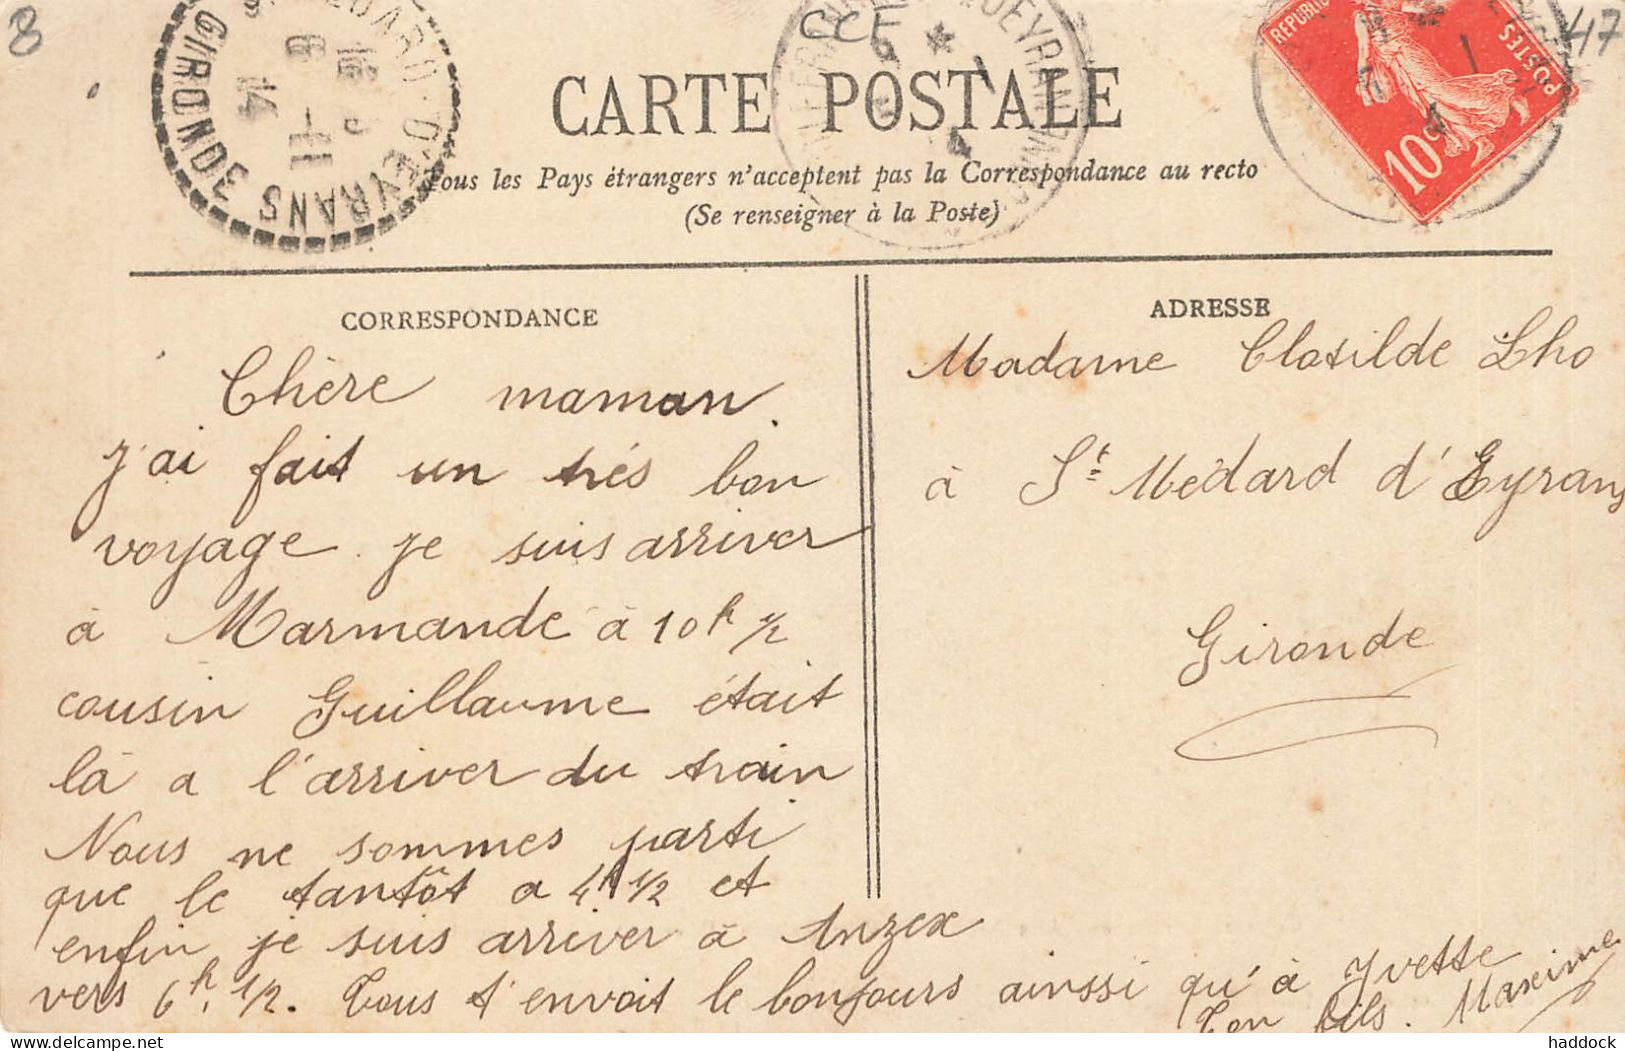 8
CCF
47
GIRONDE
D'EYRANS
11
6
14
REPUBLIQUE
POSTES
10c
CARTE POSTALE
Tous les Pays étrangers n'acceptent pas la Correspondance au recto
(Se renseigner à la Poste)
CORRESPONDANCE
Chère maman.
j'ai fait un très bon
voyage. je suis arriver
à Marmande à 10h 1/2
cousin Guillaume était
là a l'arriver du train
Nous ne sommes parti
que le tantôt a 4h 1/2 et
enfin je suis arriver à Anzex
vers 6h. 1/2. Tous t'envoit le bonjours ainssi qu'à Yvette
Ton fils. Maxime
ADRESSE
Madame Clotilde Lho
à St Médard d'Eyrans
Gironde
haddock